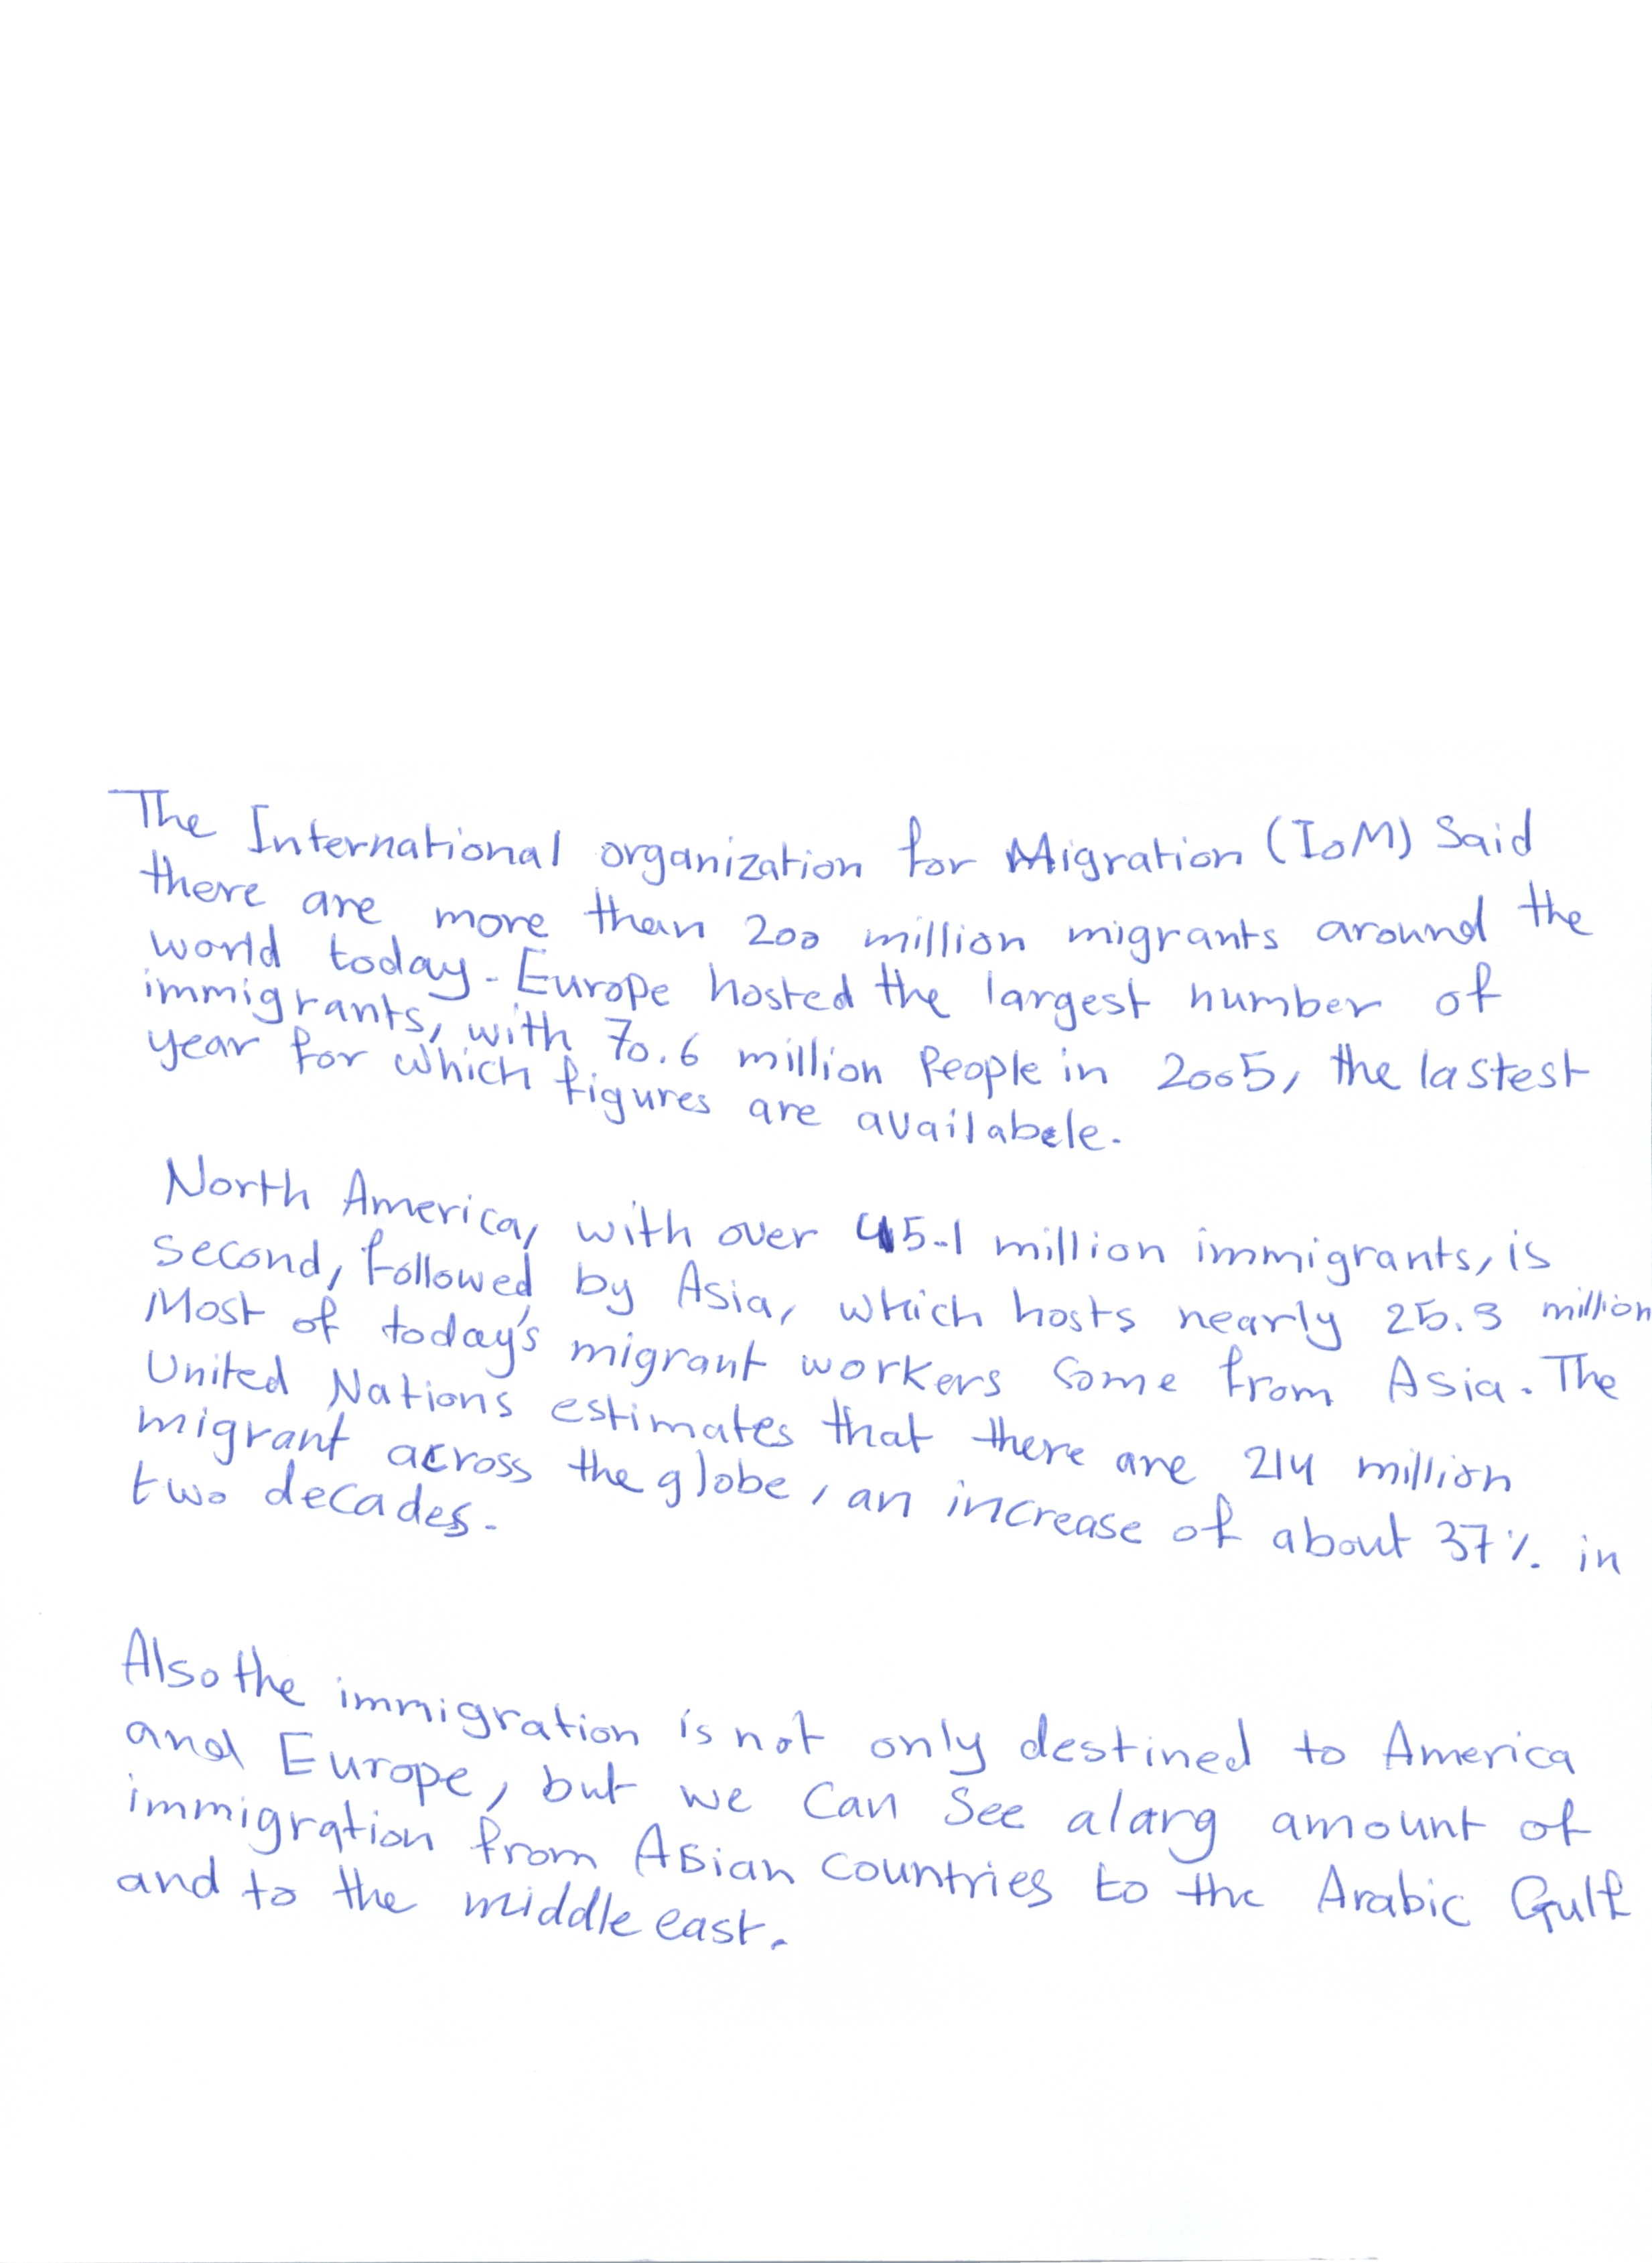 The International organization for Migration (IoM) Said
there are more than 200 million migrants around the
world today. Europe hosted the largest number of
immigrants, with 70.6 million People in 2005, the lastest
year for which figures are availabele.
North America, with over 45.1 million immigrants, is
second, followed by Asia, which hosts nearly 25.3 million
Most of today's migrant workers Some from Asia. The
United Nations estimates that there are 214 million
migrant across the globe, an increase of about 37% in
two decades.
Also the immigration is not only destined to America
and Europe, but we Can See alarg amount of
immigration from Asian countries to the Arabic Gulf
and to the middle east.